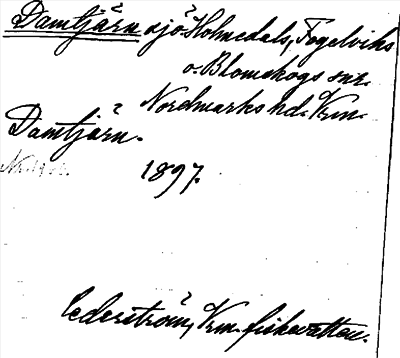 Damtjärn sjö i Holmedals, Fogelviks
o. Blomskogs snr.
Nordmarks hd. Vrm.
Damtjärn.
1897.
Cederström, Vrm. fiskevatten.